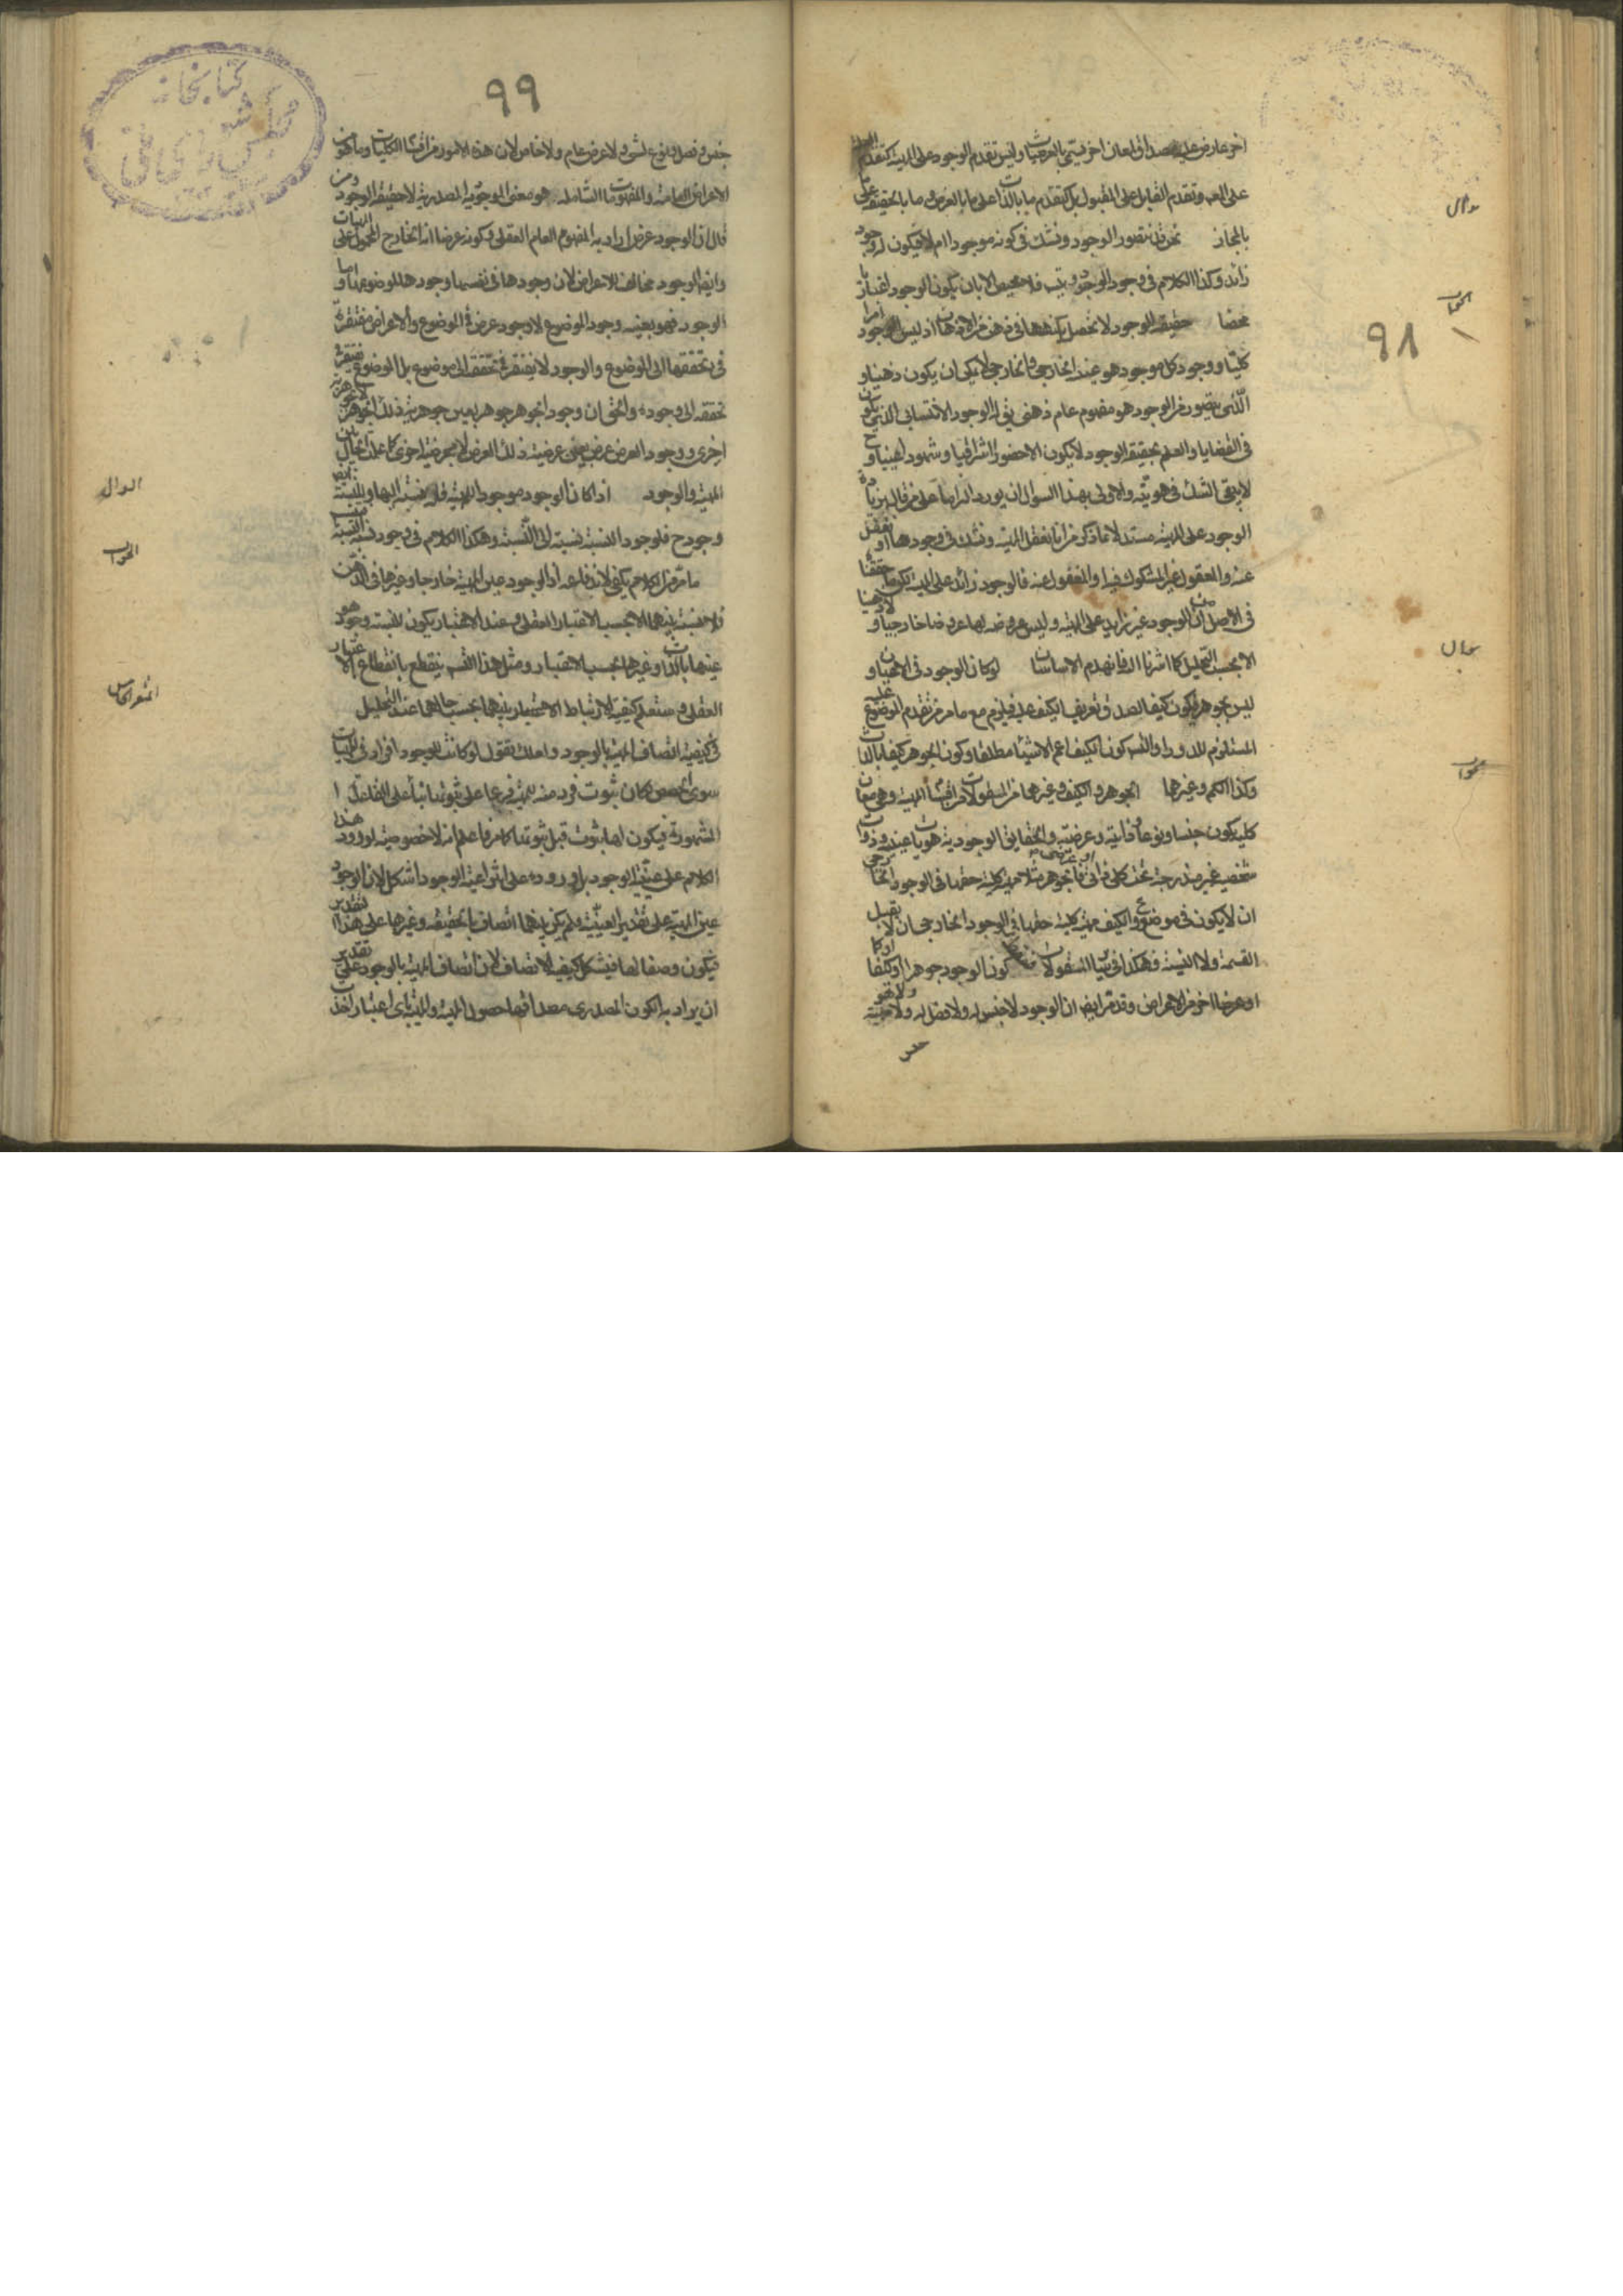 ٩٨
اخر عارض عليه مصداق لمعان اخر يسمى بالعرضيات وليس تقدم الوجود على المهية كتقدم العلة
على المع وتقدم القابل على المقبول بل كتقدم ما بالذات على ما بالعرض وما بالحقيقة على
بالمجاز نحن قد نتصور الوجود ونشك في كونه موجودا ام لا فيكون له وجود
زائد وكذا الكلام في وجود الوجود ويتس فلا محيص الا بان يكون الوجود اعتباريا
محضا حقيقة الوجود لا تحصل بكنهها في ذهن من الاذهان اذ ليس الوجود امرا
كليا ووجود كل موجود هو عينه الخارجي والخارجي لا يمكن ان يكون ذهنيا و
الذي يتصور من الوجود هو مفهوم عام ذهني يقال له الوجود الانتسابي الذي يكون
في القضايا والعلم بحقيقة الوجود لا يكون الا حضورا اشراقيا وشهودا عينيا وح
لا يبقى الشك في هويته والاولى بهذا السؤال ان يورد الزاما على من قال بزيادة
الوجود على المهية مستدلا بما ذكر من انا نعقل المهية ونشك في وجودها او نغفل
عنه والمعقول غير المشكوك فيه او المغفول عنه فالوجود زائد على المهية لكن ما حققنا
في الاصل من ان الوجود غير زايد على المهية وليس عروضه لها عروضا خارجيا ولا ذهنيا
الا بحسب التحليل كما اشرنا اليه فانهدم الاساسان لو كان الوجود في الاعيان و
ليس بجوهر فيكون كيفا لصدق تعريف الكيف عليه فيلزم مع ما مر من تقدم الموضوع عليه
المستلزم للدور او التس كون الكيف اعم الاشياء مطلقا وكون الجوهر كيفا بالذات
وكذا الكم وغيرها الجوهر والكيف وغيرهما من المقولات من اقسام المهية وهي معان
كلية يكون جنسا ونوعا وذاتية وعرضية والحقايق الوجودية هويات عينية وذوات
شخصية غير مندرجة تحت كلي ذاتي او عرضي فالجوهر مثلا مهية كلية حقها في الوجود الخارجي
ان لا يكون في موضوع والكيف مهية كلية حقها في الوجود الخارجي ان لا يقبل
القسمة ولا النسبة وهكذا في ساير المقولات فسقط كون الوجود جوهرا او كيفا او كما
او عرضا اخر من الاعراض وقد مر ايضا ان الوجود لا جنس له ولا فصل له ولا مهية ولا هو
٩٩
جنس وفصل ونوع لشيء ولا عرض عام ولا خاص لان هذه الامور من اقسام الكليات وما هو من
الاعراض العامة والمفهومات الشاملة هو معنى الموجودية المصدرية لا حقيقة الوجود ومن
قال ان الوجود عرض اراد به المفهوم العام العقلي وكونه عرضا انه الخارج المحمول على المهيات
وايضا الوجود مخالف للاعراض لان وجودها في نفسها وجودها لموضوعها واما
الوجود فهو بعينه وجود الموضوع لا وجود عرض في الموضوع والاعراض مفتقرة
في تحققها الى الموضوع والوجود لا يفتقر في تحققه الى موضوع بل الموضوع يفتقر في
تحققه الى وجوده والحق ان وجود الجوهر جوهر بعين جوهرية ذلك الجوهر لا بجوهرية
اخرى ووجود العرض عرض بعين عرضية ذلك العرض لا بعرضية اخرى كما علمت الحال بين
المهية والوجود اذا كان الوجود موجودا للمهية فله نسبة اليها وللنسبة ايض
وجود ح فلوجود النسبة نسبة الى النسبة وهكذا الكلام في وجود نسبة النسبة فيتس
ما مر من الكلام يكفي لاندفاعه اذ الوجود عين المهية خارجا وغيرها في الذهن
فلا نسبة بينهما الا بحسب الاعتبار العقلي وعند الاعتبار يكون للنسبة وجود هو
عينها بالذات وغيرها بحسب الاعتبار ومثل هذا التس ينقطع بانقطاع الاعتبار
العقلي وستعلم كيفية الارتباط بينهما بحسب حالهما عند التحليل
في كيفية اتصاف المهية بالوجود ولعلك تقول لو كانت للوجود افراد في المهيات
سوى الحصص لكان ثبوت فرد منه للمهية فرعا على ثبوتها بناء على القاعدة
المشهورة فيكون لها ثبوت قبل ثبوتها كما مر فاعلم انه لا خصوصية لورود هذا
الكلام على عينية الوجود بل وروده على انتزاعية الوجود اشكل لان الوجود
عين المهية على تقدير العينية فلم يكن بينهما اتصاف بالحقيقة وغيرها على هذا التقدير
فيكون وصفا لها فيشكل كيفية الاتصاف لان اتصاف المهية بالوجود على تقدير
ان يراد به الكون المصدري مصداقها حصول المهية والمهية باي اعتبار اخذت
السؤال
الجواب
المشعر الخامس
كتابخانه
مجلس شورای ملی